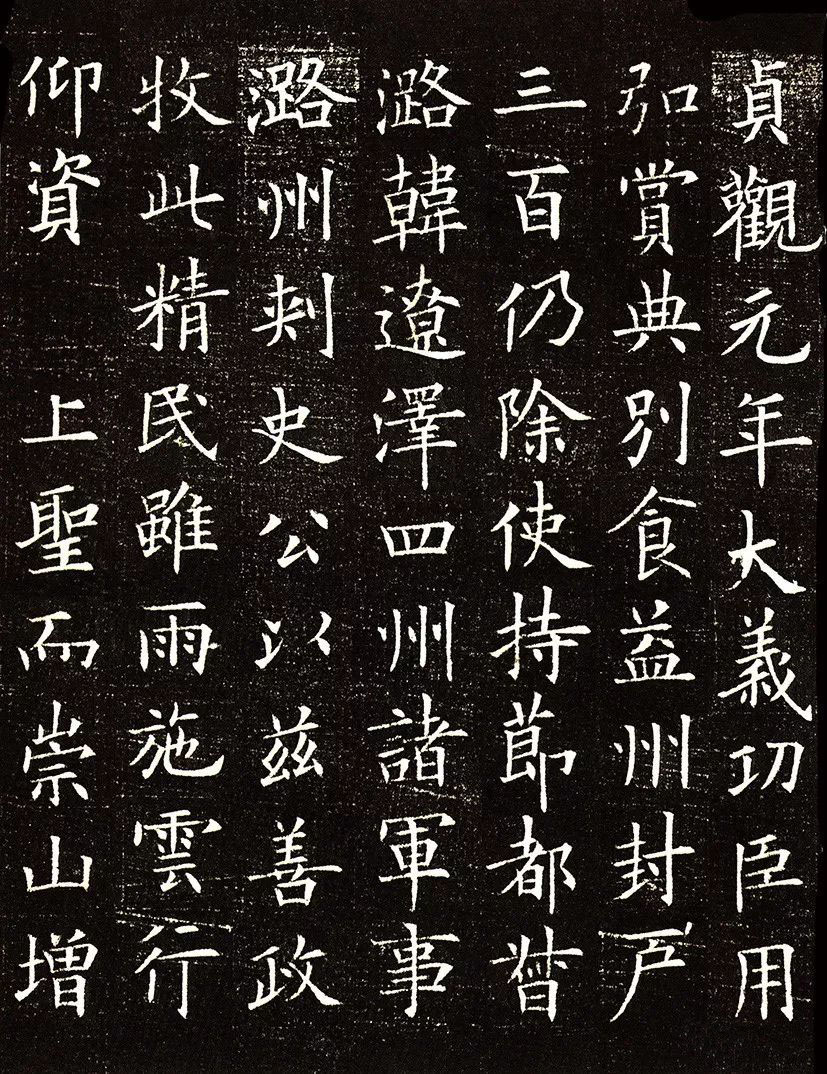 貞觀元年大義功臣用
弘賞典別食益州封戶
三百仍除使持節都督
潞韓遼澤四州諸軍事
潞州刺史公以茲善政
牧此精民雖雨施雲行
仰資 上聖而崇山增